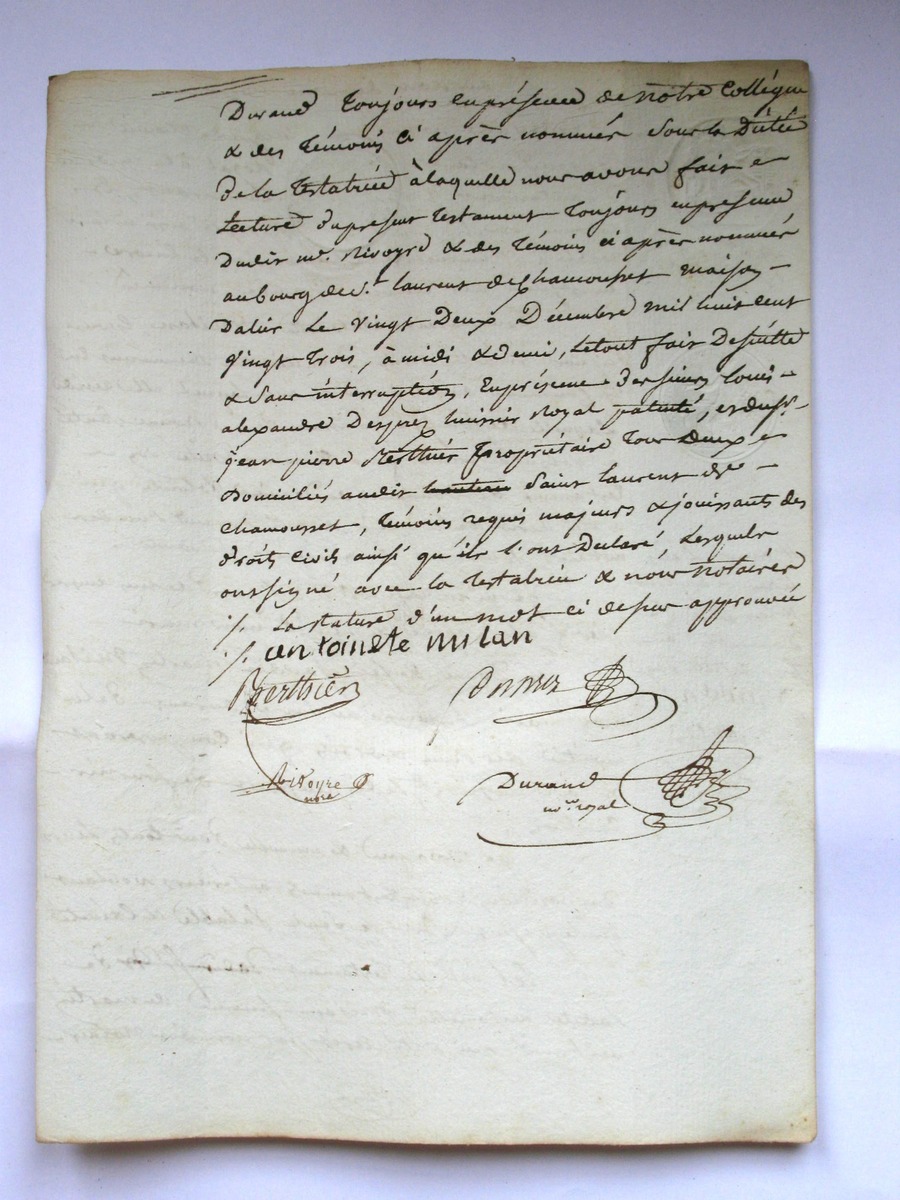 Durand Toujours en présence de notre Collégue
& des Témoins ci après nommés sous la Dictée
de la Testatrice à laquelle nous avons fait
Lecture du présent Testament Toujours en présence
Dudit me. Rivoyre & des Témoins ci après nommés
au bourg de St. laurent de Chamousset maison
Le vingt Deux Décembre mil huit cent
vingt Trois, à midi & demi, Le tout fait De suitte
& sans interruption, En présence des sieurs louis
alexandre huissier Royal patenté, et du sr.
jean pierre Berthier propriétaire Tous Deux
Domiciliés audit Saint laurent de
Chamousset, Témoins requis majeurs & jouissants des
droits Civils ainsi qu'ils l'ont Declaré, Lesquels
ont signé avec la Testatrice & nous Notaires
/. La rature d'un mot ci dessus approuvée
/. antoinete milan
Berthier
Rivoyre nore
Durand
nore royal